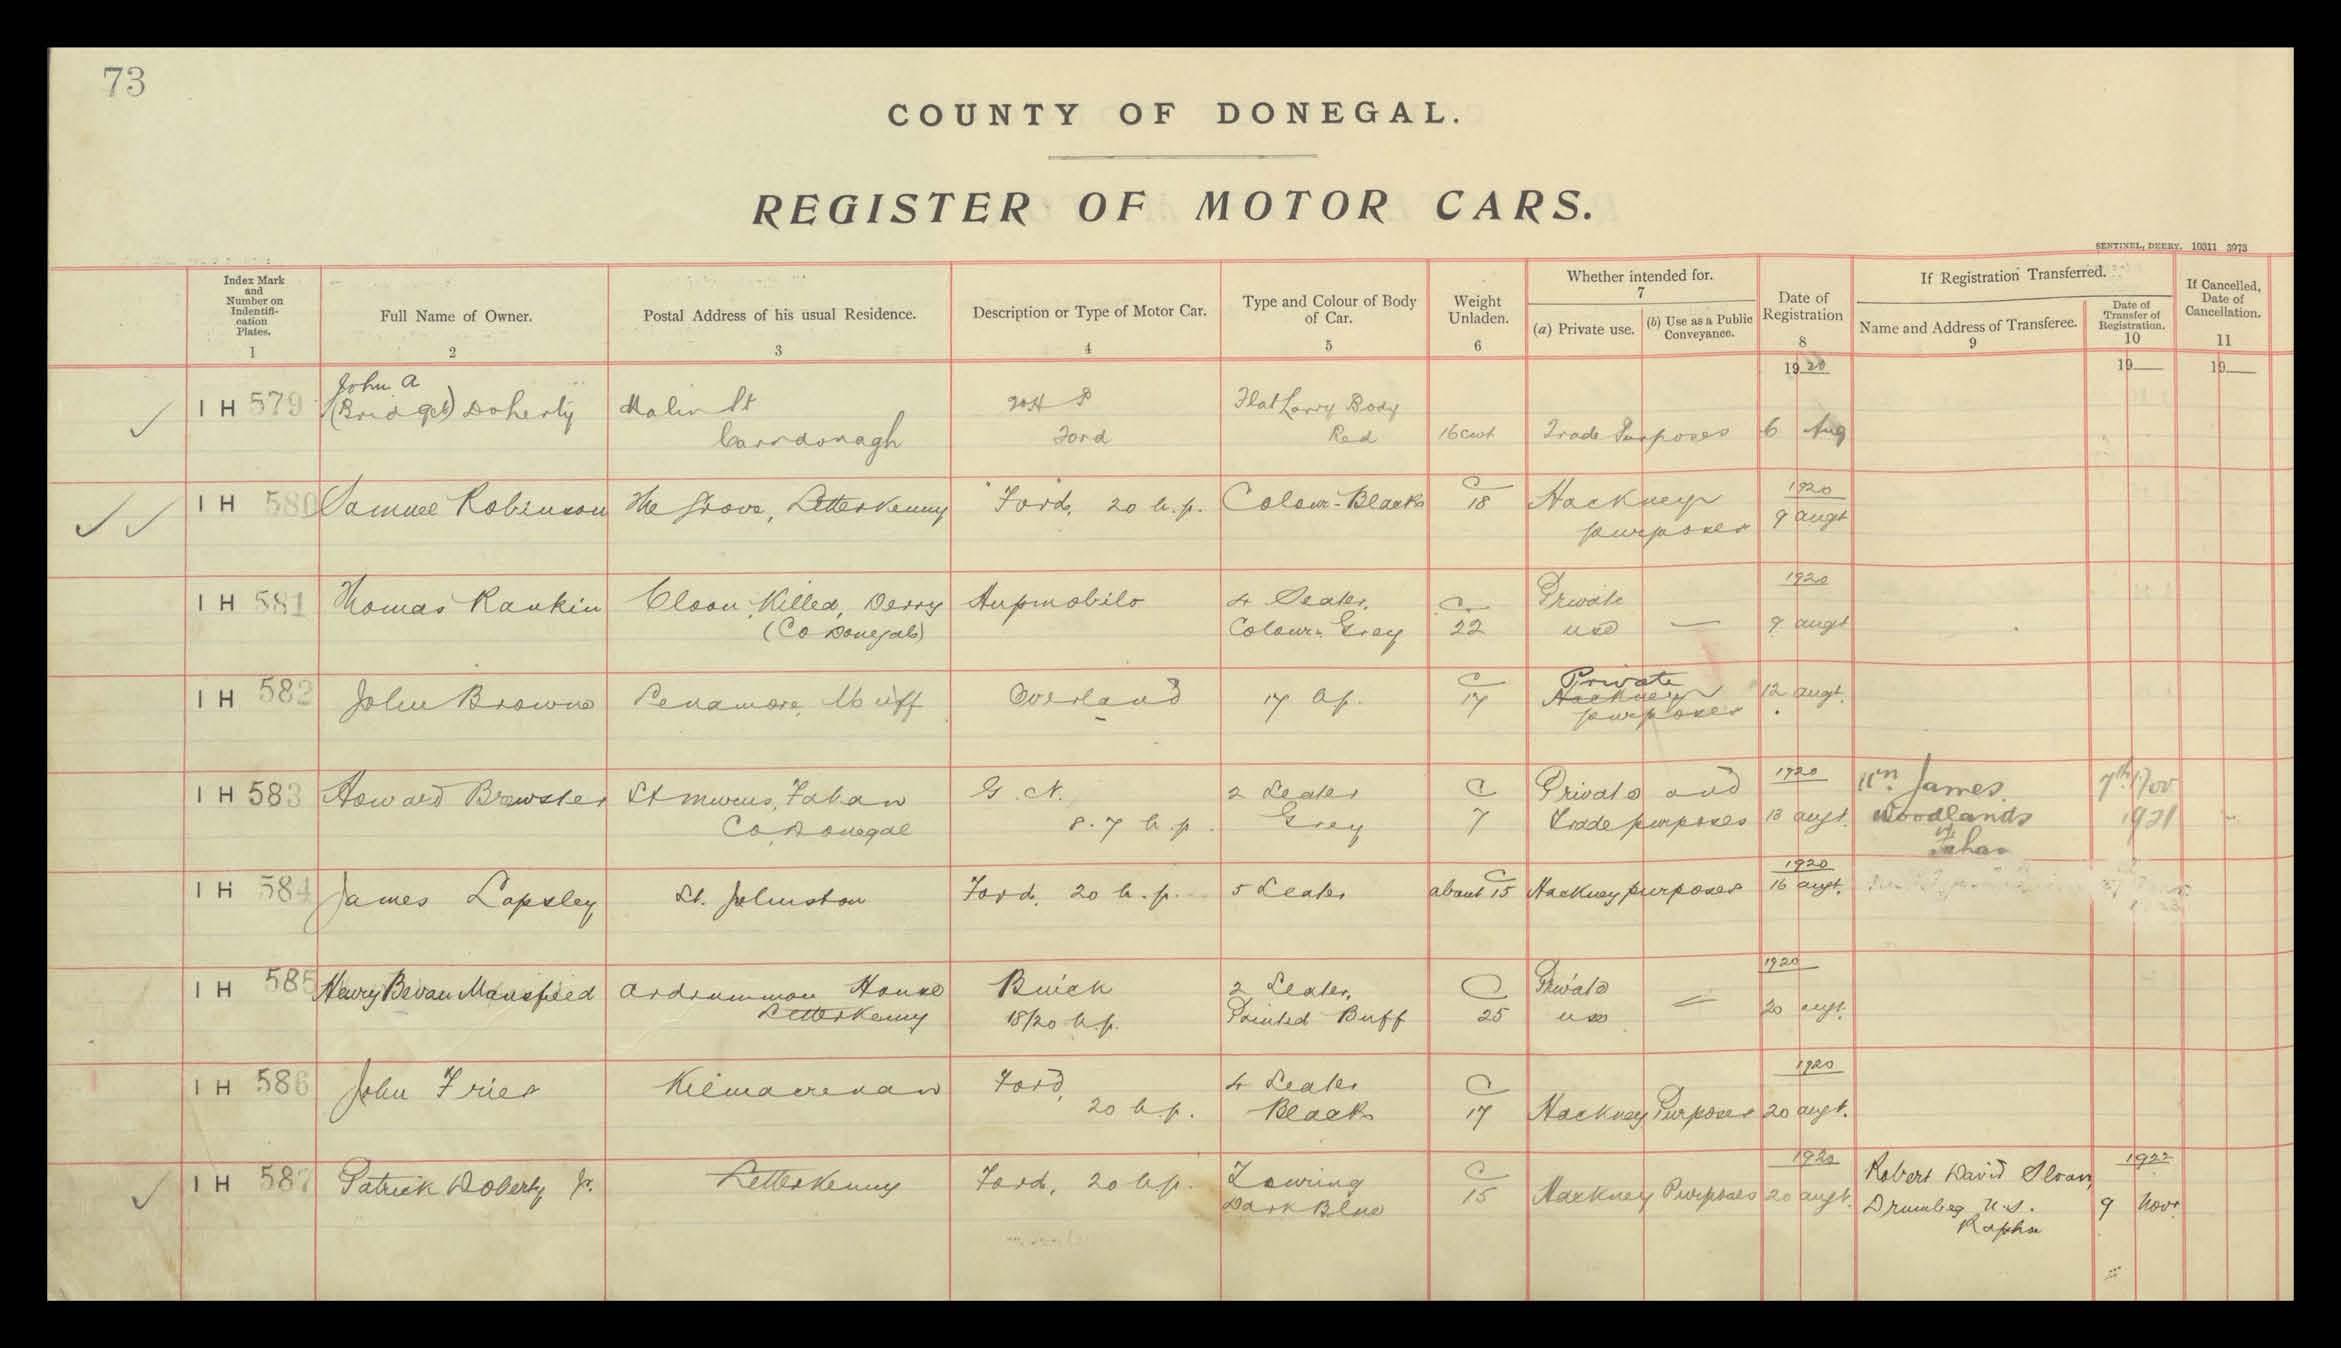 73
COUNTY OF DONEGAL.
REGISTER OF MOTOR CARS.
SENTINEL, DERRY. 10311 3973
Index Mark
and
Number on
Indentifi-
cation
Plates.
1
Full Name of Owner.
2
Postal Address of his usual Residence.
3
Description or Type of Motor Car.
4
Type and Colour of Body
of Car.
5
Weight
Unladen.
6
Whether intended for.
7
(a) Private use.
(b) Use as a Public
Conveyance.
Date of
Registration
8
If Registration Transferred.
Name and Address of Transferee.
9
Date of
Transfer of
Registration.
10
If Cancelled,
Date of
Cancellation.
11
1920
19
19
John A
I H 579 (Bridget) Doherty Malin St 20 H P Flat Lorry Body
Carndonagh Ford Red 16 cwt Trade Purposes 6 Aug
1920
I H 580 Samuel Robinson The Grove, Letterkenny Ford, 20 h.p. Colour-Black C 18 Hackney 9 augt
purposes
1920
I H 581 Thomas Rankin Cloon, Killea, Derry Hupmobile 4 Seater, C Private
(Co Donegal) Colour: Grey 22 use — 9 augt
Private
I H 582 John Browne Muff Overland 17 hp. C 17 Hackney 12 augt.
purposes
1920
I H 583 Howard Brewster St Murus, Fahan G. N. 2 Seater C Private and Wm. James 7th Nov
Co. Donegal 8.7 h.p. Grey 7 Trade purposes 13 augt. Woodlands 1921
Fahan
1920
I H 584 James Lapsley St. Johnston Ford, 20 h.p. 5 Seater about C 15 Hackney purposes 16 augt.
1920
I H 585 Henry Bevan Mansfield Ardrummon House Buick 2 Seater, C Private
Letterkenny 18/20 h.p. Painted Buff 25 use 20 augt.
1920
I H 586 John Frier Kilmacrenan Ford, 4 Seater C
20 h.p. Black 17 Hackney Purposes 20 augt.
1920 1922
I H 587 Patrick Doherty Jr. Letterkenny Ford, 20 h.p. Touring C 15 Hackney Purposes 20 augt. Robert David Sloan,
Dark Blue Drumbeg 9 Novr
Raphoe